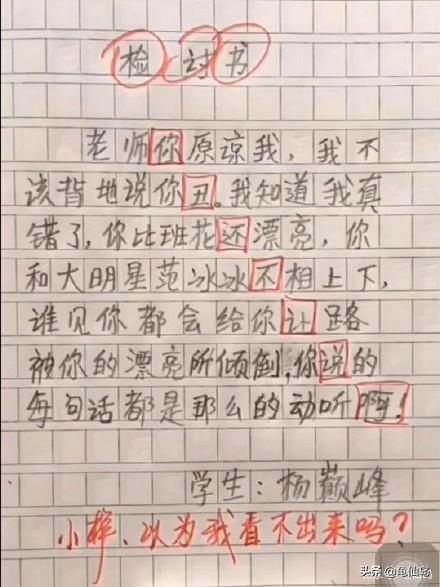 检讨书
老师你原谅我，我不
该背地说你丑。我知道我真
错了，你比班花还漂亮，你
和大明星范冰冰不相上下，
谁见你都会给你让路
被你的漂亮所倾倒，你说的
每句话都是那么的动听啊！
学生：杨巅峰
小样、以为我看不出来吗？
头条@龟仙岛